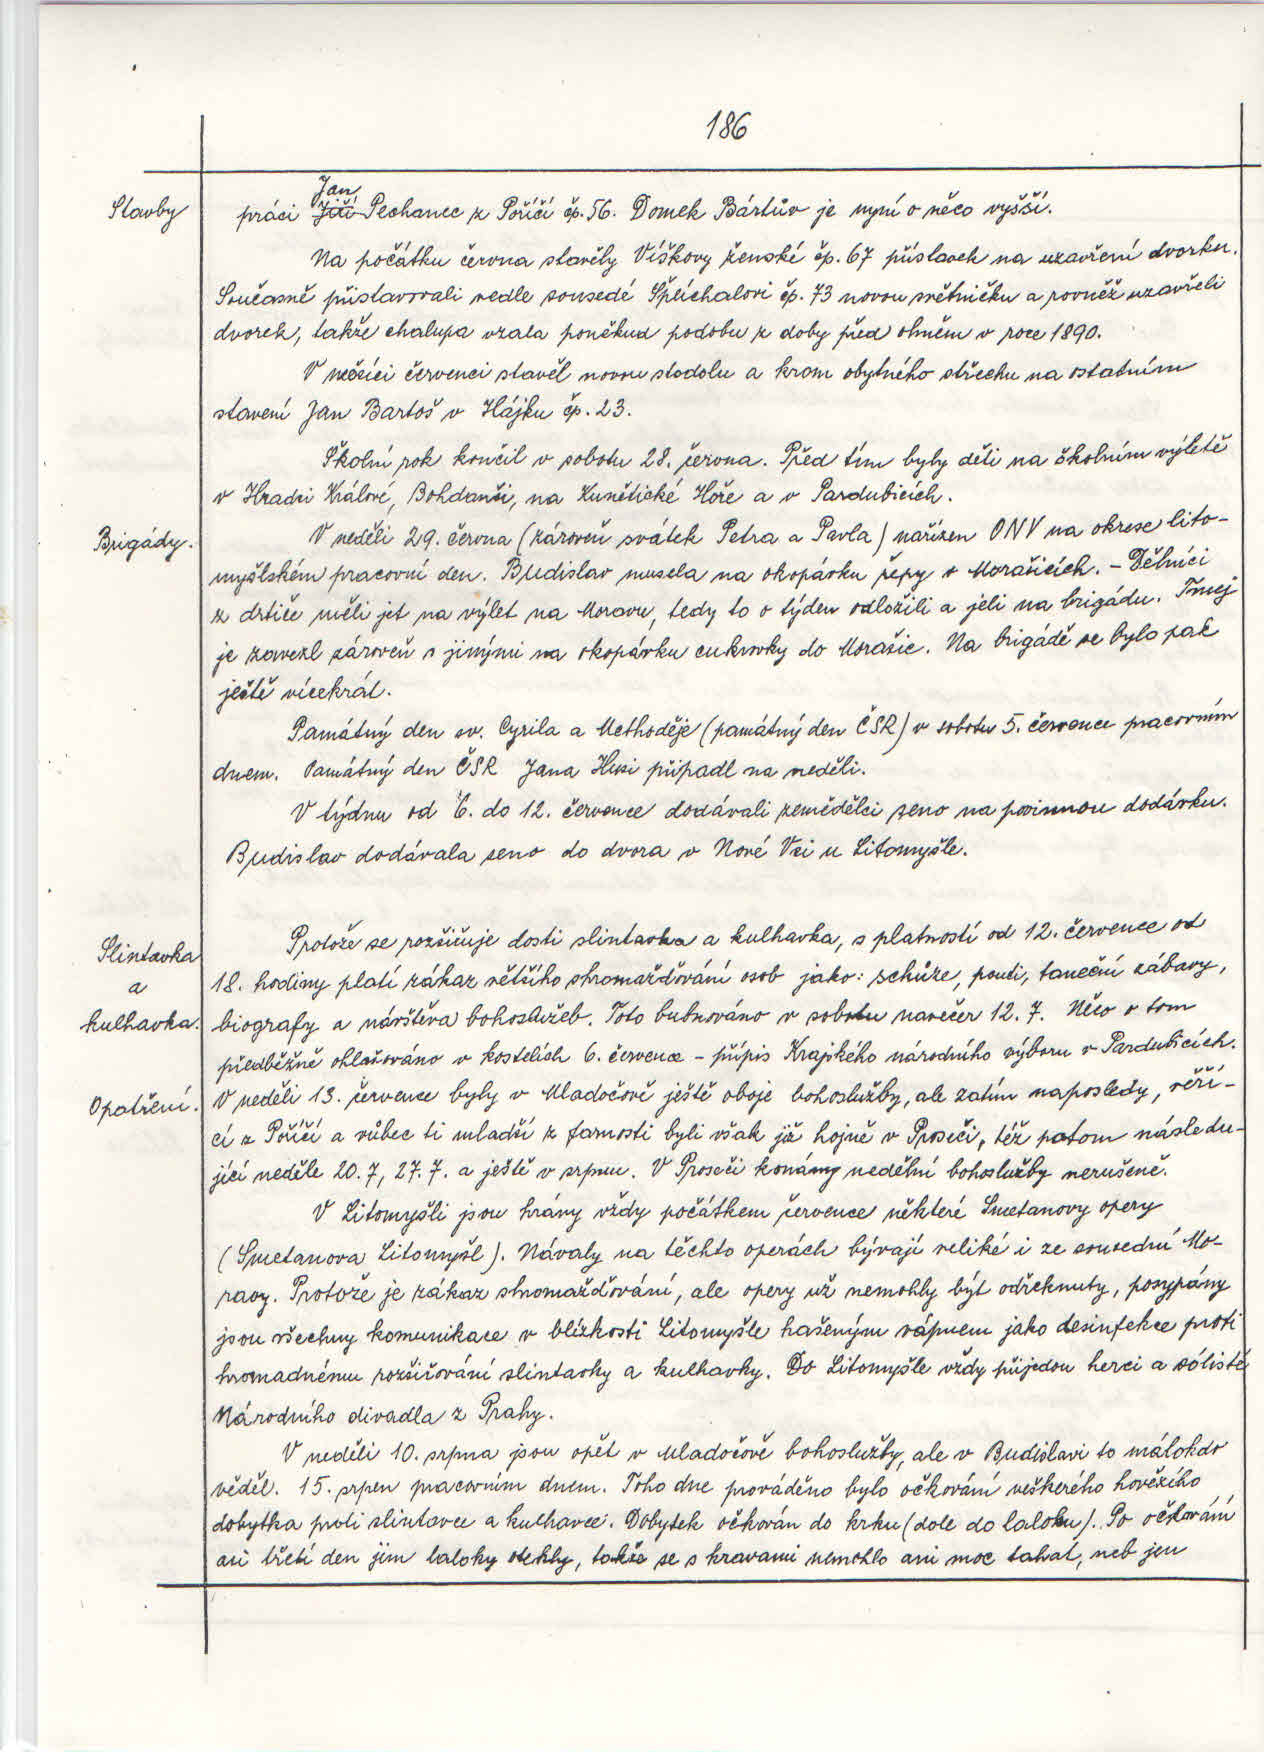 186
Stavby
Jan
práci Jiří Pechanec z Poříčí čp. 56. Domek Bártův je nyní o něco vyšší.
Na počátku června stavěly Víškovy ženské čp. 67 přístavek na uzavření dvorku.
Současně přistavovali vedle sousedé Splíchalovi čp. 73 novou světničku a rovněž uzavřeli
dvorek, takže chalupa vzala poněkud podobu z doby před ohněm v roce 1890.
V měsíci červenci stavěl novou stodolu a krom obytného střechu na ostatním
stavení Jan Bartoš v Hájku čp. 23.
Školní rok končil v sobotu 28. června. Před tím byly děti na školním výletě
v Hradci Králové, Bohdanči, na Kunětické Hoře a v Pardubicích.
Brigády.
V neděli 29. června (zároveň svátek Petra a Pavla) nařízen ONV na okrese lito-
myšlském pracovní den. Budislav musela na okopávku řepy v Morašicích. - Dělníci
z drtiče měli jet na výlet na Moravu, tedy to o týden odložili a jeli na brigádu.
je zavezl zároveň s jinými na okopávku cukrovky do Morašic. Na brigádě se bylo pak
ještě vícekrát.
Památný den sv. Cyrila a Methoděje (památný den ČSR) v sobotu 5. července pracovním
dnem. Památný den ČSR Jana Husi připadl na neděli.
V týdnu od 6. do 12. července dodávali zemědělci seno na povinnou dodávku.
Budislav dodávala seno do dvora v Nové Vsi u Litomyšle.
Slintavka
a
kulhavka.
Protože se rozšiřuje dosti slintavka a kulhavka, s platností od 12. července od
18. hodiny platí zákaz většího shromažďování osob jako: schůze, pouti, taneční zábavy,
biografy a návštěva bohoslužeb. Toto bubnováno v sobotu navečer 12. 7. Něco o tom
předběžně ohlašováno v kostelích 6. července - přípis Krajského národního výboru v Pardubicích.
Opatření.
V neděli 13. července byly v Mladočově ještě oboje bohoslužby, ale zatím naposledy, věří-
cí z Poříčí a vůbec ti mladší z farnosti byli však již hojně v Proseči, též potom následu-
jící neděle 20. 7, 27. 7. a ještě v srpnu. V Proseči konány nedělní bohoslužby nerušeně.
V Litomyšli jsou hrány vždy počátkem července některé Smetanovy opery
(Smetanova Litomyšl). Návaly na těchto operách bývají veliké i ze sousední Mo-
ravy. Protože je zákaz shromažďování, ale opery už nemohly být odřeknuty, posypány
jsou všechny komunikace v blízkosti Litomyšle hašeným vápnem jako desinfekce proti
hromadnému rozšiřování slintavky a kulhavky. Do Litomyšle vždy přijedou herci a sólisté
Národního divadla z Prahy.
V neděli 10. srpna jsou opět v Mladočově bohoslužby, ale v Budislavi to málokdo
věděl. 15. srpen pracovním dnem. Toho dne prováděno bylo očkování veškerého hovězího
dobytka proti slintavce a kulhavce. Dobytek očkován do krku (dole do laloku). Po očkování
asi třetí den jim laloky otekly, takže se s kravami nemohlo ani moc tahat, neb jen